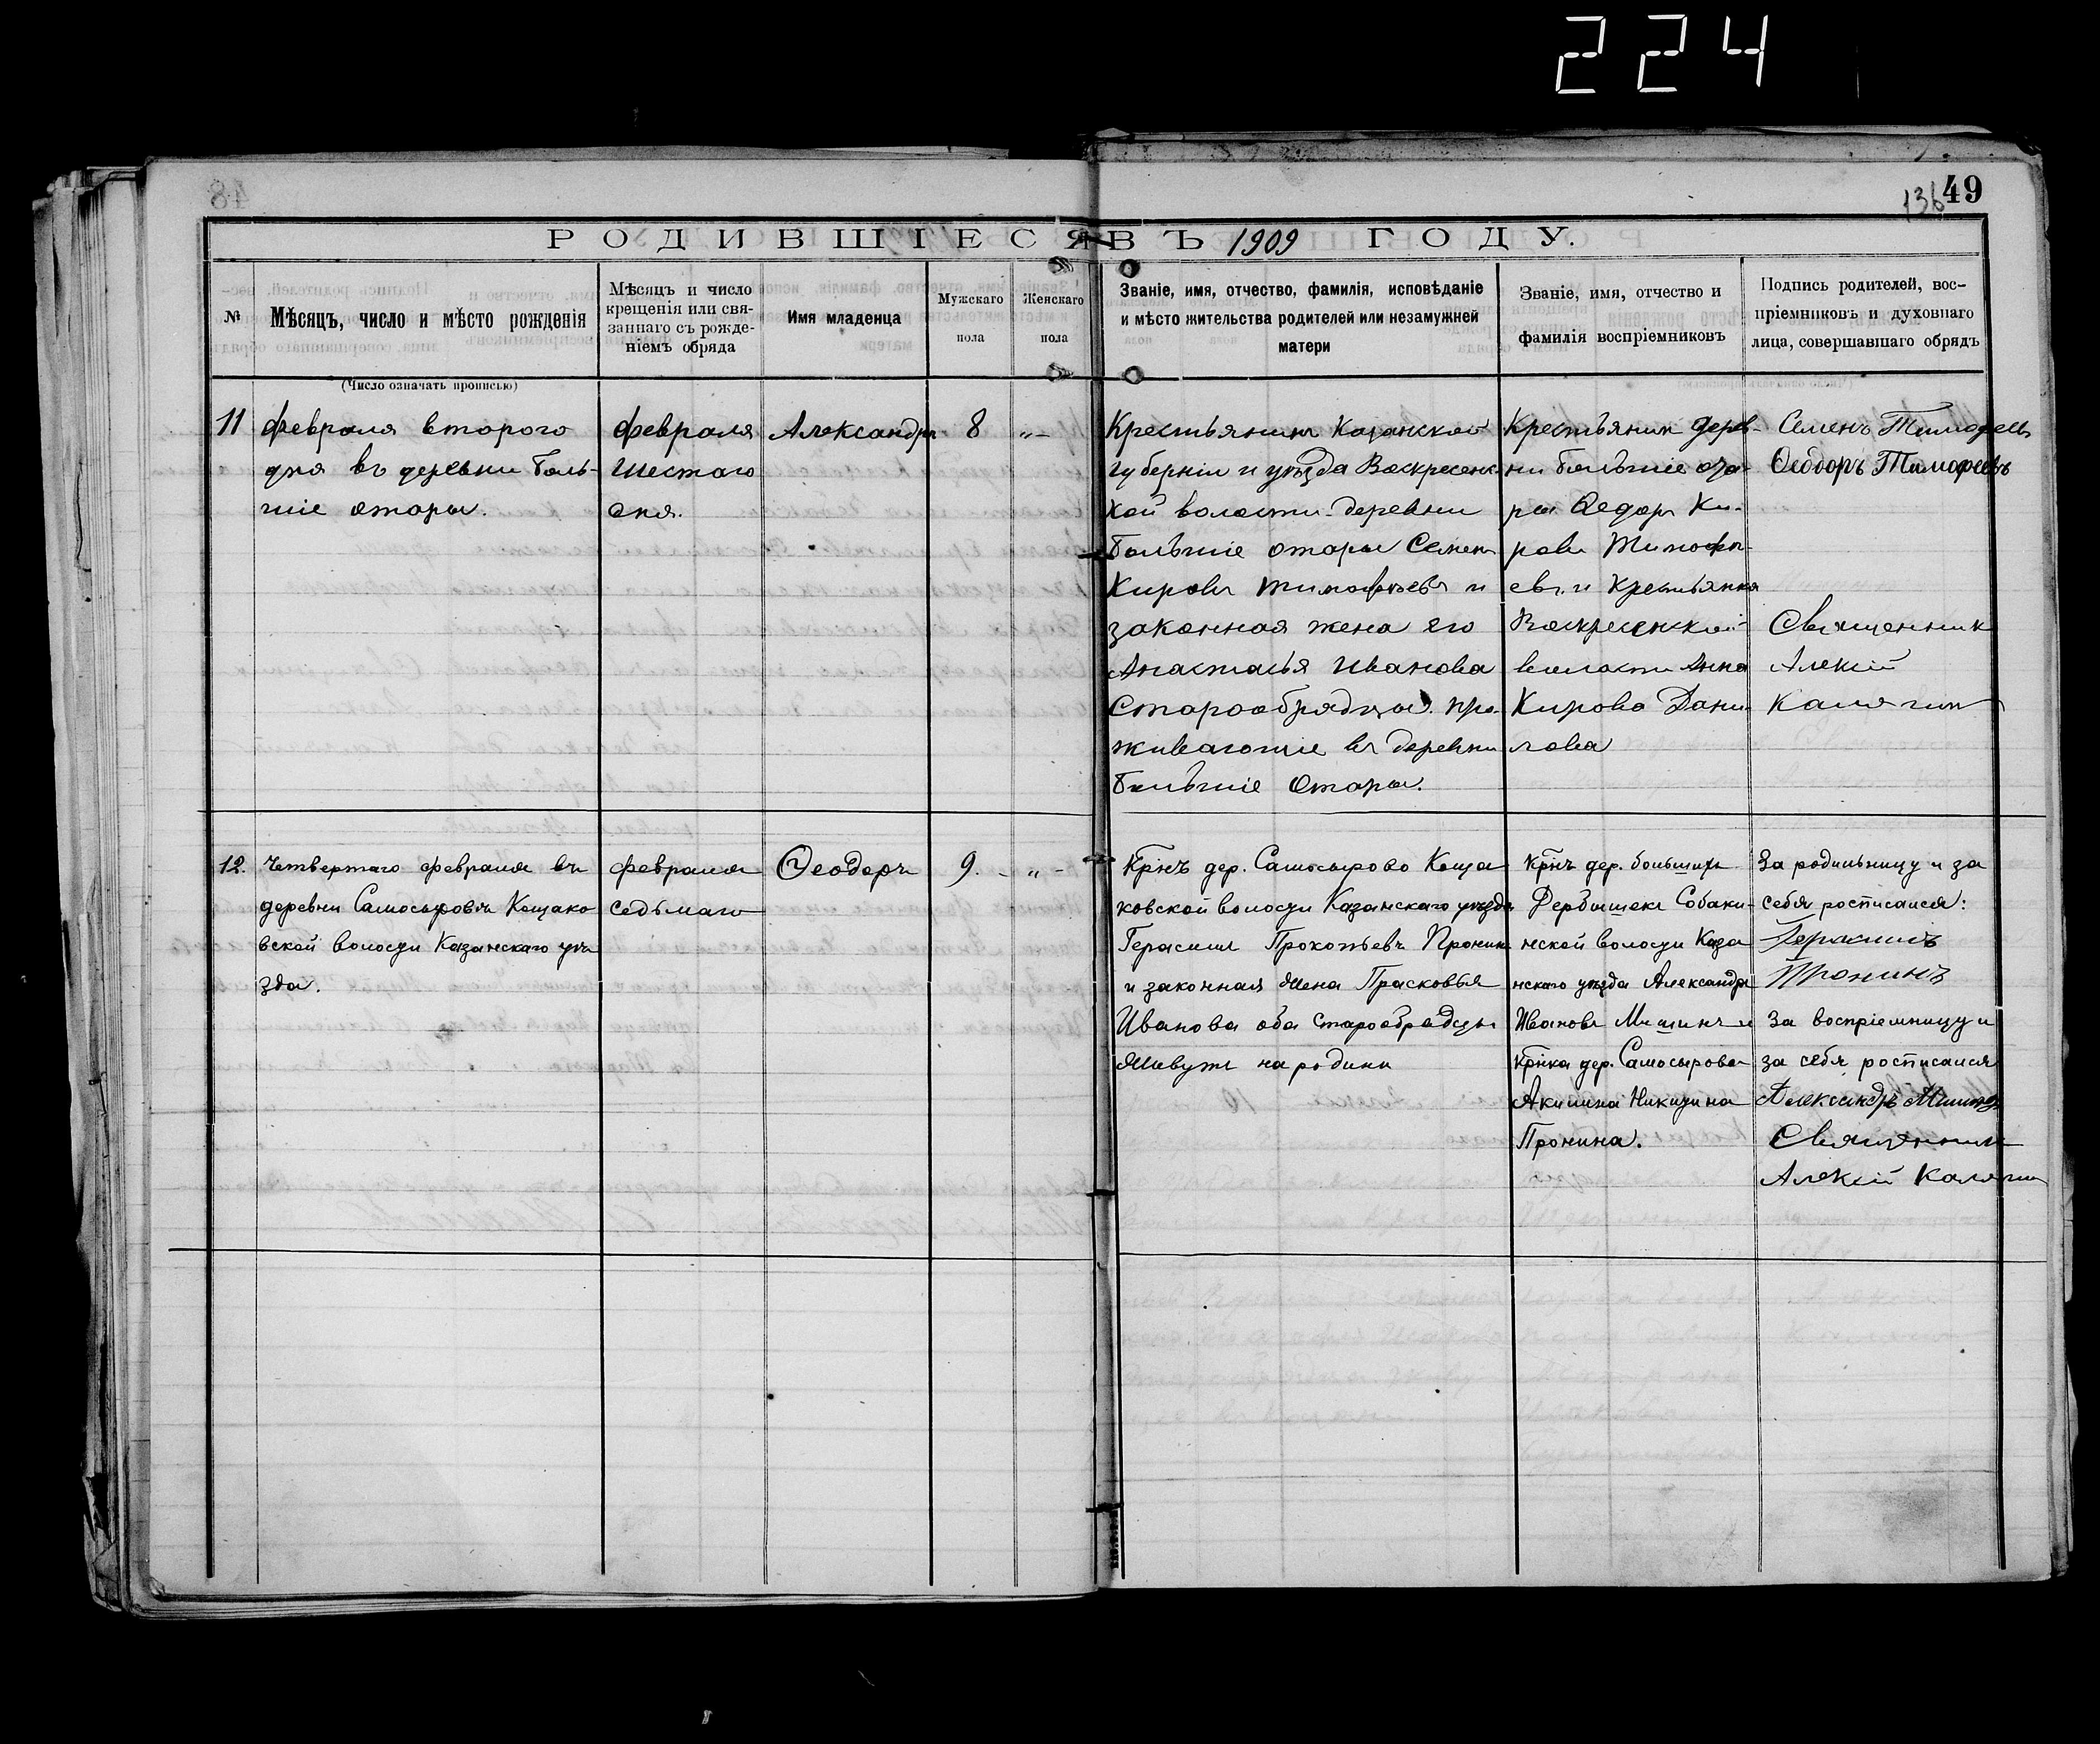 224
136 49
РОДИВШІЕСЯ ВЪ 1909 ГОДУ.
№
Мѣсяцъ, число и мѣсто рожденія
Мѣсяцъ и число
крещенія или свя-
заннаго съ рожде-
ніемъ обряда
Имя младенца
Мужскаго
пола
Женскаго
пола
Званіе, имя, отчество, фамилія, исповѣданіе
и мѣсто жительства родителей или незамужней
матери
Званіе, имя, отчество и
фамилія воспріемниковъ
Подпись родителей, вос-
пріемниковъ и духовнаго
лица, совершавшаго обрядъ
(Число означать прописью)
11
Февраля второго
дня въ деревни Боль-
шіе отары.
Февраля
Шестаго
дня.
Александръ
8
„-
Крестьянинъ Казанской
губерніи и уѣзда Воскресенс
кой волости деревни
Большіе отары Семенъ
Кировъ Тимофѣевъ и
законная жена его
Анастасья Иванова
Старообрядцы. про-
живающіе въ деревни
Большіе Отары.
Крестьянин дерев-
ни Большіе ота-
ры Ѳедоръ Ки-
ровъ Тимофѣ-
евъ. и Крестьянка
Воскресенской
волости Анна
Кирова Дани
лова
Семенъ Тимофеевъ
Ѳеодоръ Тимофеевъ
Священник
Алексій
Калягин
12.
Четвертаго февраля въ
деревни Самосыровѣ Кощако
вской волости Казанскаго уѣ
зда.
Февраля
седьмаго
Ѳеодоръ
9.
- „ -
Крнъ дер. Самосырово Коща
ковской волости Казанскаго уѣзда
Герасимъ Прокопьевъ Пронинъ
и законная Жена Прасковья
Иванова оба Старообрядцы
Живутъ на родини
Крнъ дер. большихъ
Дербышекъ Собаки-
нской волости Каза
нскаго уѣзда Александръ
Ивановъ Мишинъ и
Крнка дер. Самосырова
Акилина Никитина
Пронина.
За родильницу и за
себя росписался:
Герасимъ
Пронинъ
За воспріемницу и
за себя росписался
Александръ Мишинъ
Священник
Алексій Калягин